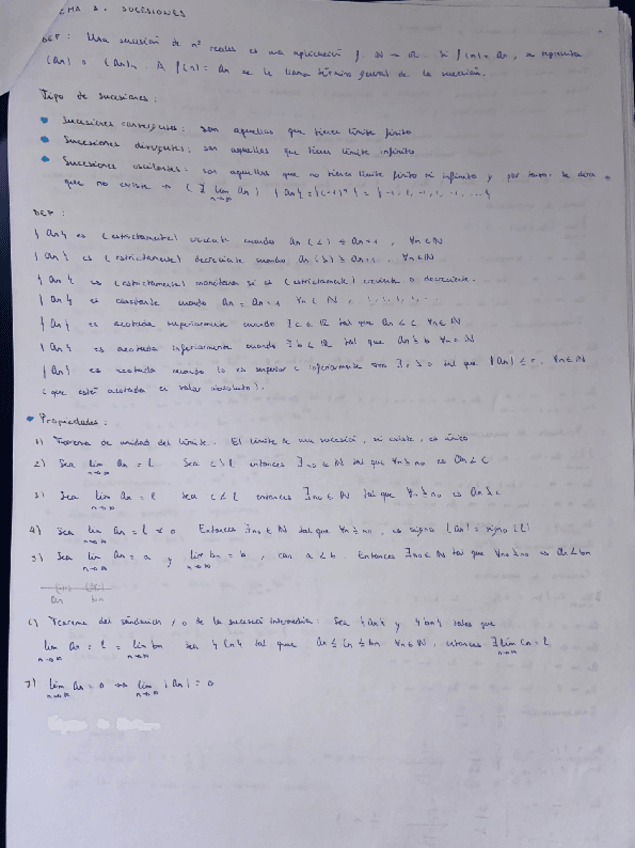 TEMA 2. SUCESIONES
DEF: Una sucesión de nº reales es una aplicación f: N → R. Si f(n) = an, se representa
{an} o {an}n. A f(n) = an se le llama término general de la sucesión.
Tipo de sucesiones:
Sucesiones convergentes: son aquellas que tienen límite finito
Sucesiones divergentes: son aquellas que tienen límite infinito
Sucesiones oscilantes: son aquellas que no tienen límite finito ni infinito y por tanto se dira
que no existe → (∄ lim n→∞ an) {an} = {(-1)^n} = {-1, 1, -1, 1, -1, ...}
DEF:
{an} es (estrictamente) creciente cuando an (<) ≤ an+1, ∀n∈N
{an} es (estrictamente) decreciente cuando an (>) ≥ an+1, ∀n∈N
{an} es (estrictamente) monótona si es (estrictamente) creciente o decreciente.
{an} es constante cuando an = an+1 ∀n∈N,
{an} es acotada superiormente cuando ∃c∈R tal que an ≤ c ∀n∈N
{an} es acotada inferiormente cuando ∃b∈R tal que an ≥ b ∀n∈N
{an} es acotada cuando lo es superior e inferiormente ∃r>0 tal que |an| ≤ r, ∀n∈N
(que esté acotada en valor absoluto).
Propiedades:
1) Teorema de unidad del límite. El límite de una sucesión, si existe, es único
2) Sea lim n→∞ an = l Sea c>l entonces ∃n0∈N tal que ∀n≥n0 es an<c
3) Sea lim n→∞ an = l sea c<l entonces ∃n0∈N tal que ∀n≥n0 es an>c
4) Sea lim n→∞ an = l ≠ 0 Entonces ∃n0∈N tal que ∀n≥n0, es signo (an) = signo (l)
5) Sea lim n→∞ an = a y lim n→∞ bn = b, con a<b. Entonces ∃n0∈N tal que ∀n≥n0 es an<bn
an bn
6) Teorema del sándwich y/o de la sucesión intermedia: Sea {an} y {bn} tales que
lim n→∞ an = l = lim n→∞ bn sea {cn} tal que an ≤ cn ≤ bn ∀n∈N, entonces ∃ lim n→∞ cn = l
7) lim n→∞ an = 0 ⇔ lim n→∞ |an| = 0